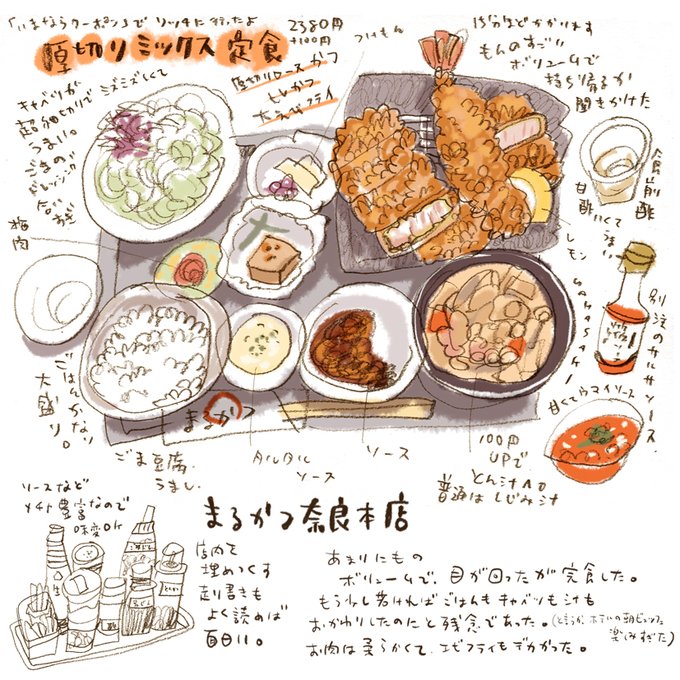 「いまならクーポン」でリッチに行ったよ
厚切りミックス定食
2380円
+100円
厚切りロースかつ
ヒレかつ
大えびフライ
つけもん
15分ほどかかります
ものすごい
ボリュームで
持ち帰るか
聞きかけた
キャベツが
超細切りでミズミズしくて
うまい。
ごまの
ドレッシング
梅肉
食前酢
甘酢
うまい。
レモン
別注のサルサソース
SARASAKI
甘くてウマイソース
ごはんかなり
大盛り。
まるかつ
ごま豆腐
うまし。
タルタル
ソース
ソース
100円
UPで
とん汁
普通はしじみ汁
ソースなど
豊富なので
味変OK
まるかつ奈良本店
店内を
埋めつくす
走り書きも
よく読めば
面白い。
あまりにもの
ボリュームで、目が回ったが完食した。
もう少し若ければごはんもキャベツも汁も
おかわりしたのにと残念であった。(どうやらホテルの朝ビュッフェ
楽しみすぎた)
お肉は柔らかくて、エビフライもデカかった。